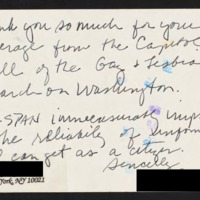 nk you so much for your
erage from the Capitol
ll of the Gay & Lesbian
arch on Washington.
-SPAN immeasurably imp
the reliability of inform
I can get as a citizen.
Sincerely
York, NY 10021